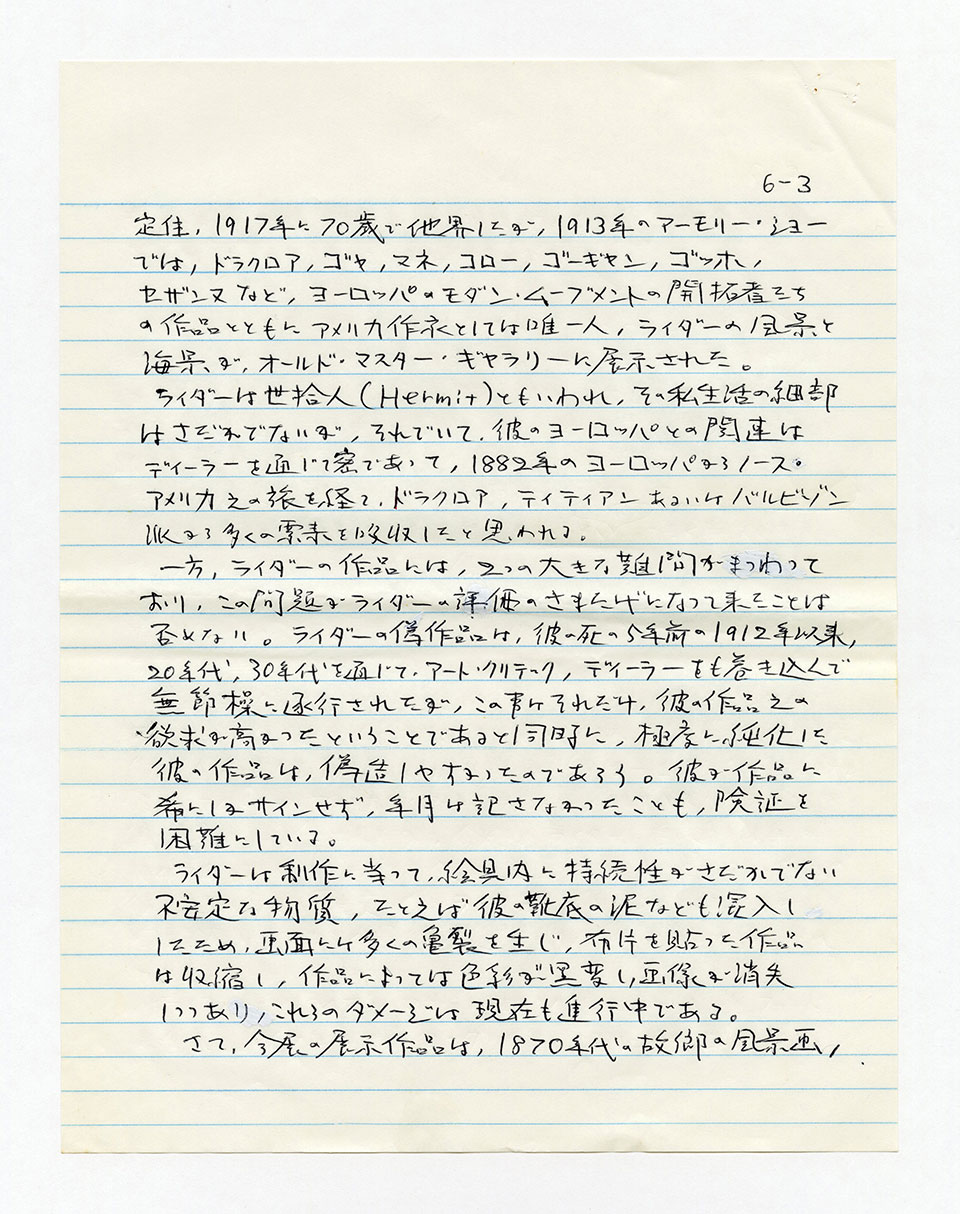 6-3
定住，1917年に70歳で他界したが，1913年のアーモリー・ショー
では，ドラクロア，ゴヤ，マネ，コロー，ゴーギャン，ゴッホ，
セザンヌなど，ヨーロッパのモダン・ムーブメントの開拓者たち
の作品とともにアメリカ作家としては唯一人，ライダーの風景と
海景が，オールド・マスター・ギャラリーに展示された。
ライダーは世捨人（Hermit）ともいわれ，その私生活の細部
はさだかでないが，それでいて，彼のヨーロッパとの関連は
ディーラーを通じて密であって，1882年のヨーロッパからノース・
アメリカえの旅を経て，ドラクロア，ティティアンあるいはバルビゾン
派から多くの要素を吸収したと思われる。
一方，ライダーの作品には，2つの大きな難問がまつわって
おり，この問題がライダーの評価のさまたげになって来たことは
否めない。ライダーの偽作品は，彼の死の5年前の1912年以来，
20年代，30年代を通じて，アート・クリテック，ディーラーをも巻き込んで
無節操に遂行されたが，この事はそれだけ，彼の作品えの
欲求が高かったということであると同時に，極度に純化した
彼の作品は，偽造しやすかったのであろう。彼が作品に
希にしかサインせず，年月は記さなかったことも，験証を
困難にしている。
ライダーは制作に当って，絵具内に持続性がさだかでない
不安定な物質，たとえば彼の靴底の泥なども混入し
したため，画面には多くの亀裂を生じ，布片を貼った作品
は収縮し，作品によっては色彩が黒変し，画像が消失
しつつあり，これらのダメージは現在も進行中である。
さて，今展の展示作品は，1870年代の故郷の風景画，